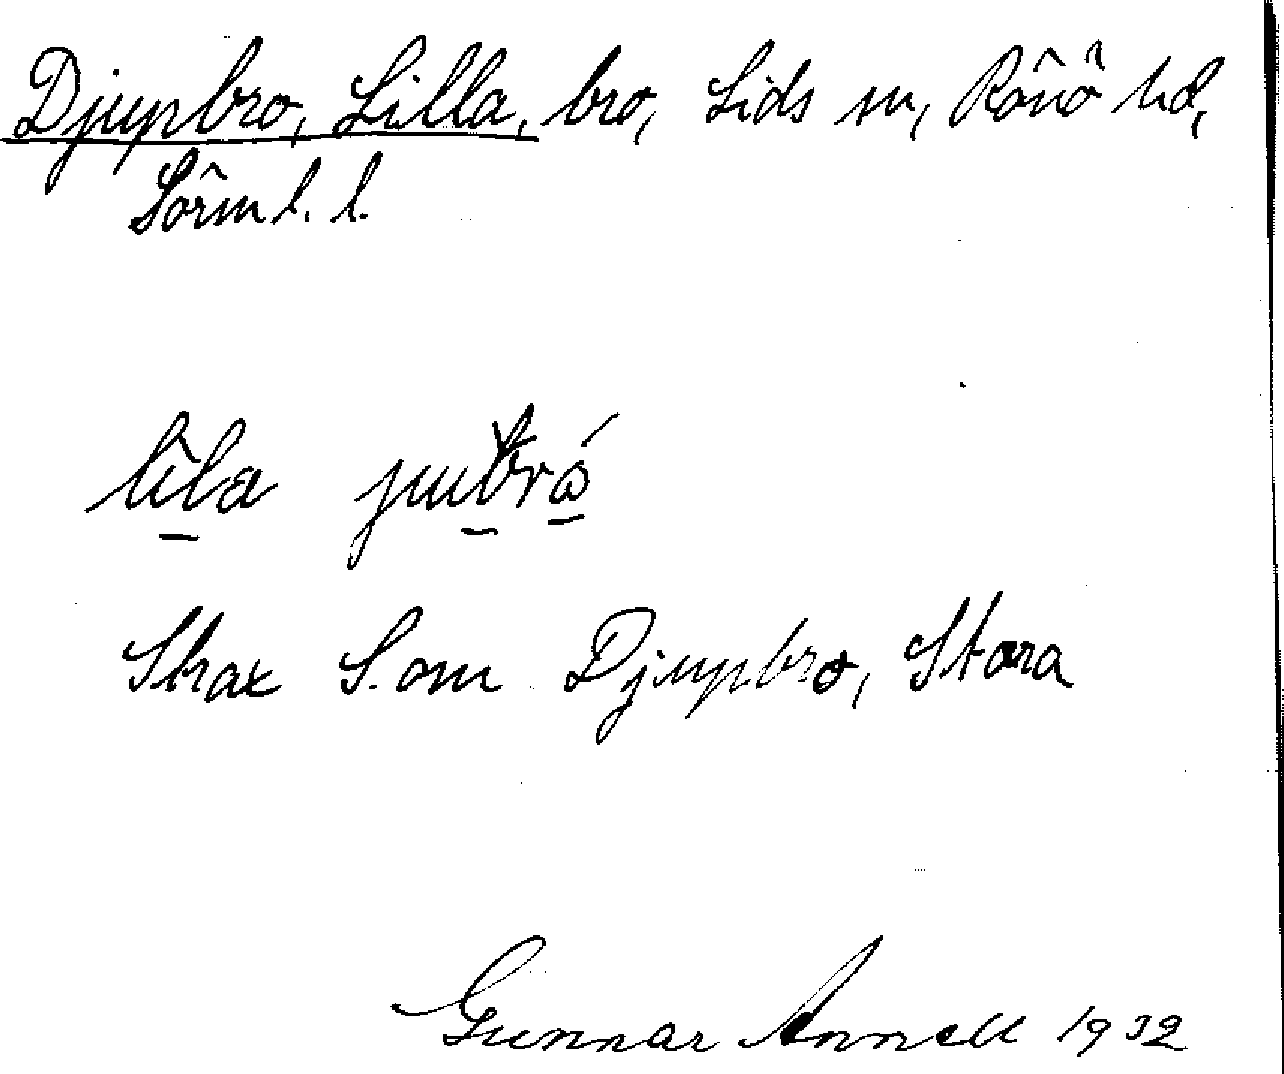 Djupbro, Lilla, bro, Lids sn, Rönö hd,
Sörml. l.
lila jubrå
Strax S. om Djupbro, Stora
Gunnar Annell 1932